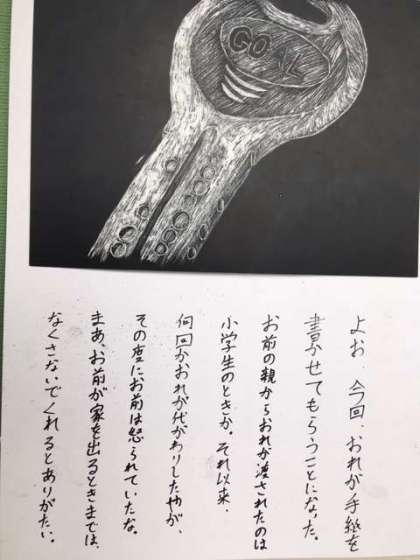 GOAL
よお、今回、おれが手紙を
書かせてもらうことになった。
お前の親からおれが渡されたのは
小学生のときか。それ以来、
何回かおれが代がわりしたやが、
その度にお前は怒られていたな。
まあ、お前が家を出るときまでは、
なくさないでくれるとありがたい。